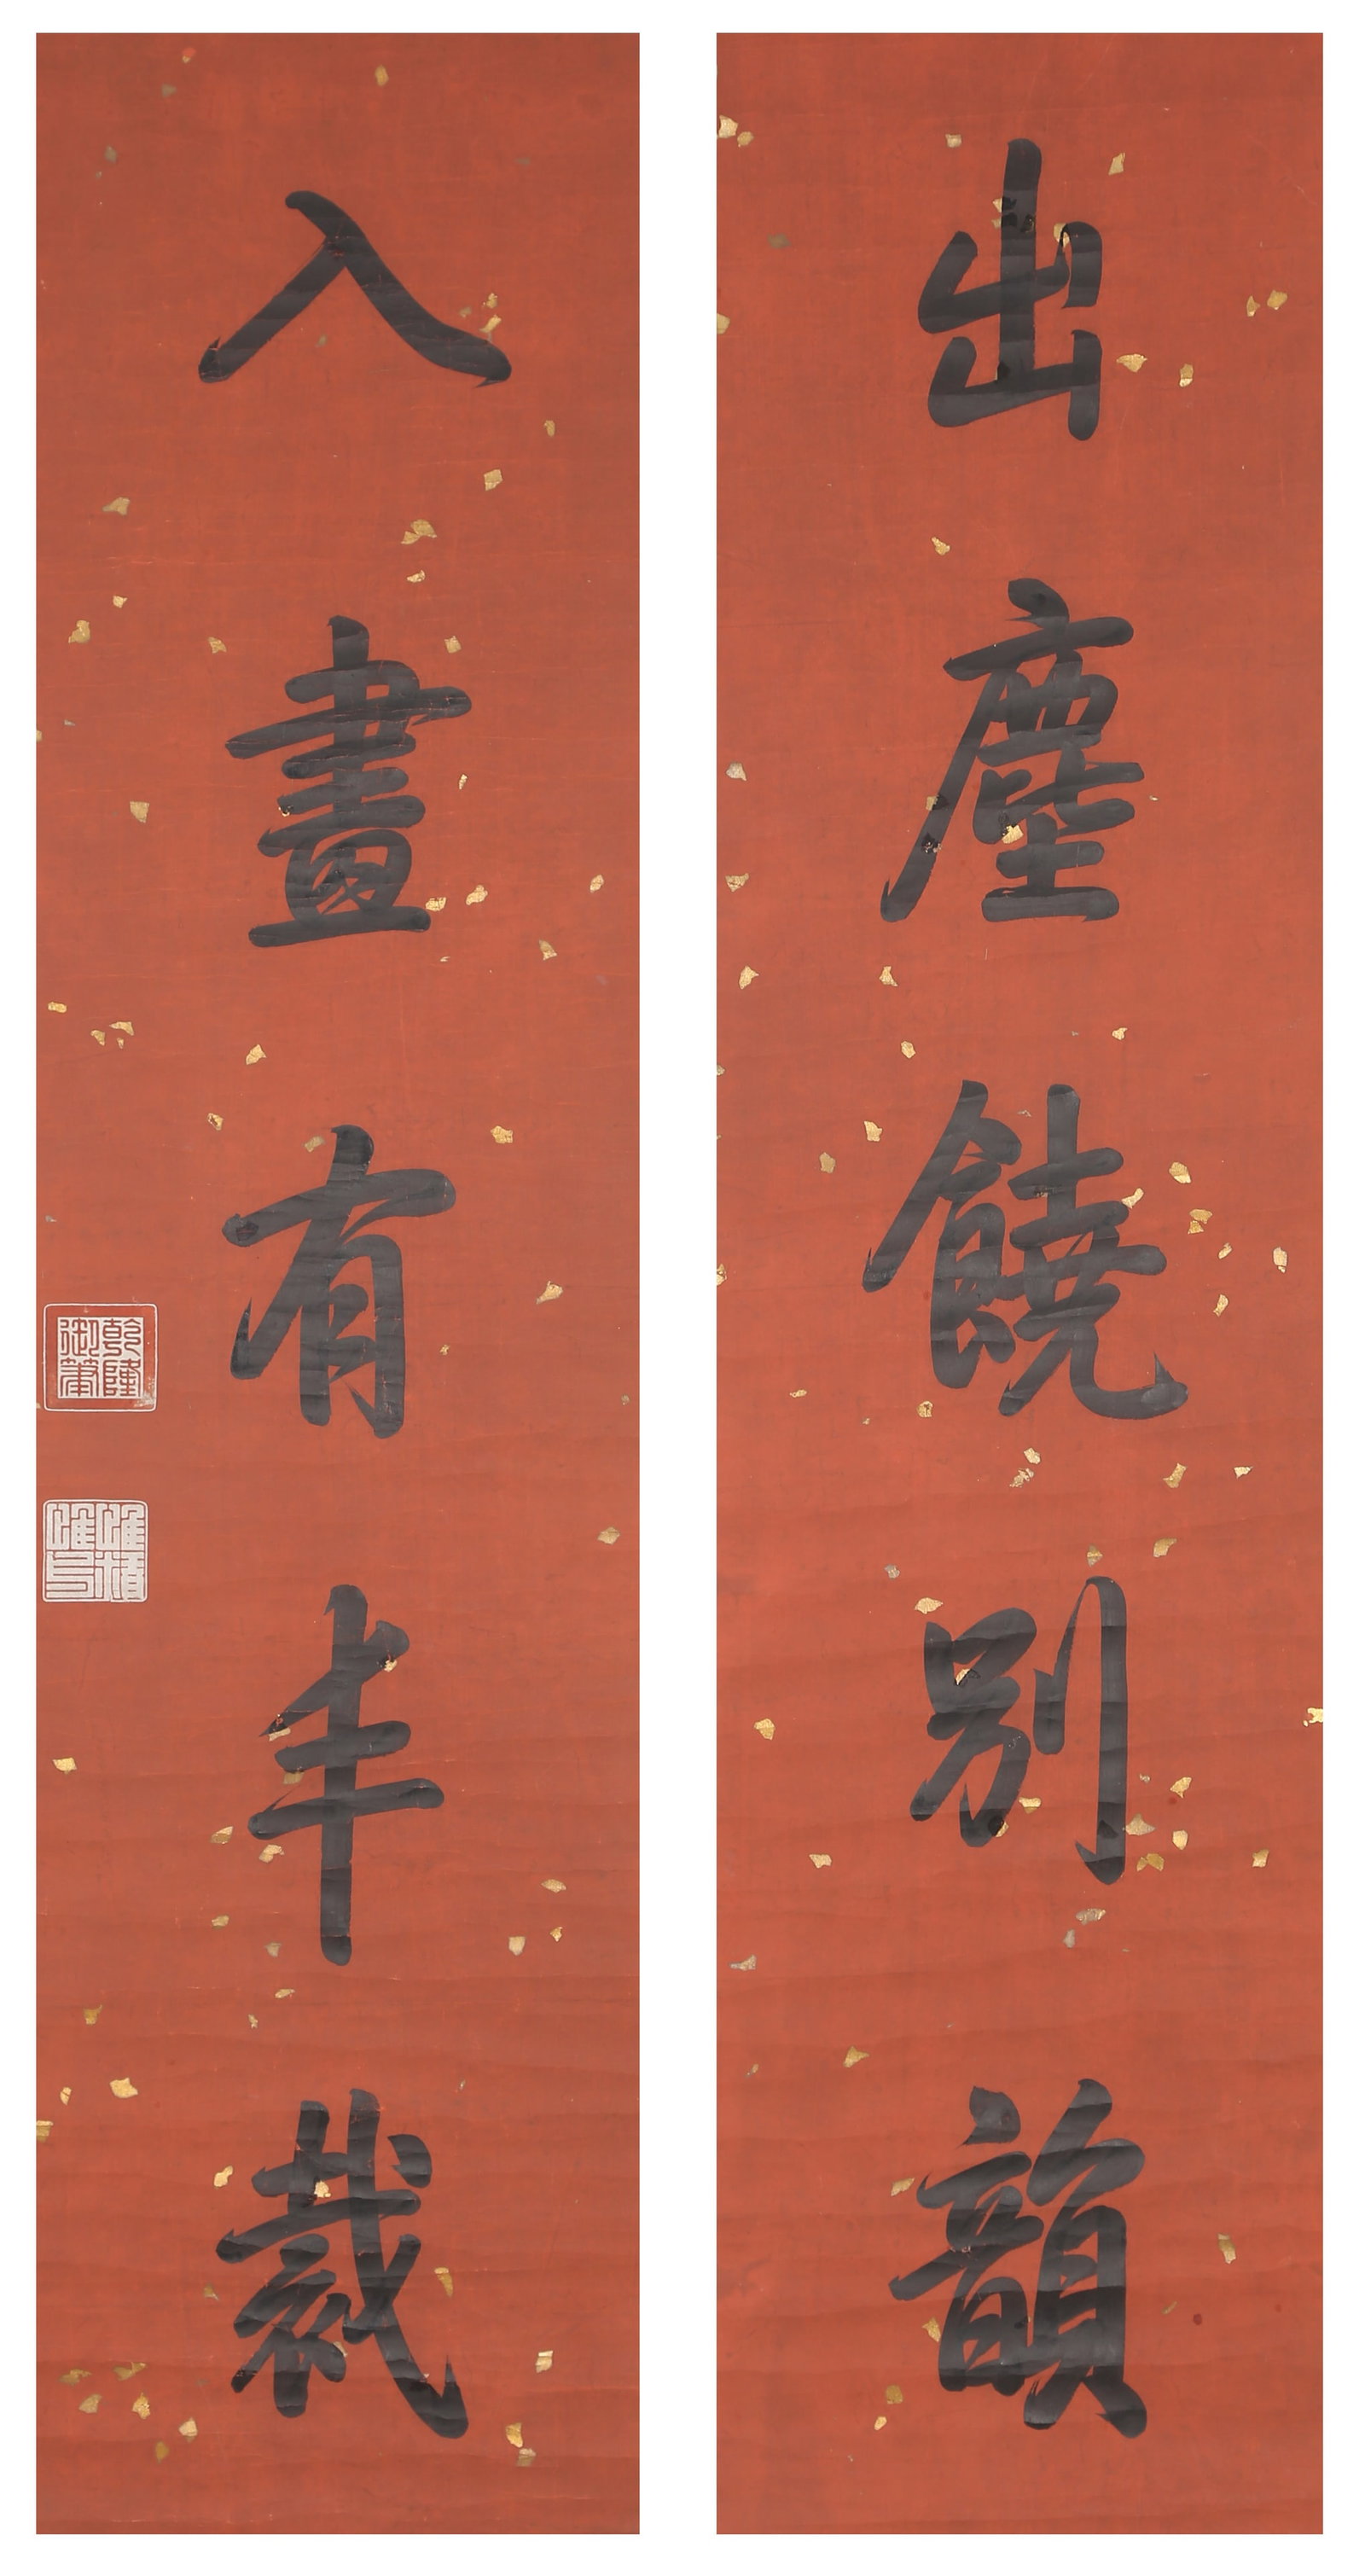 出塵饒別韻
入畫有丰裁
乾隆御筆
惟精惟一